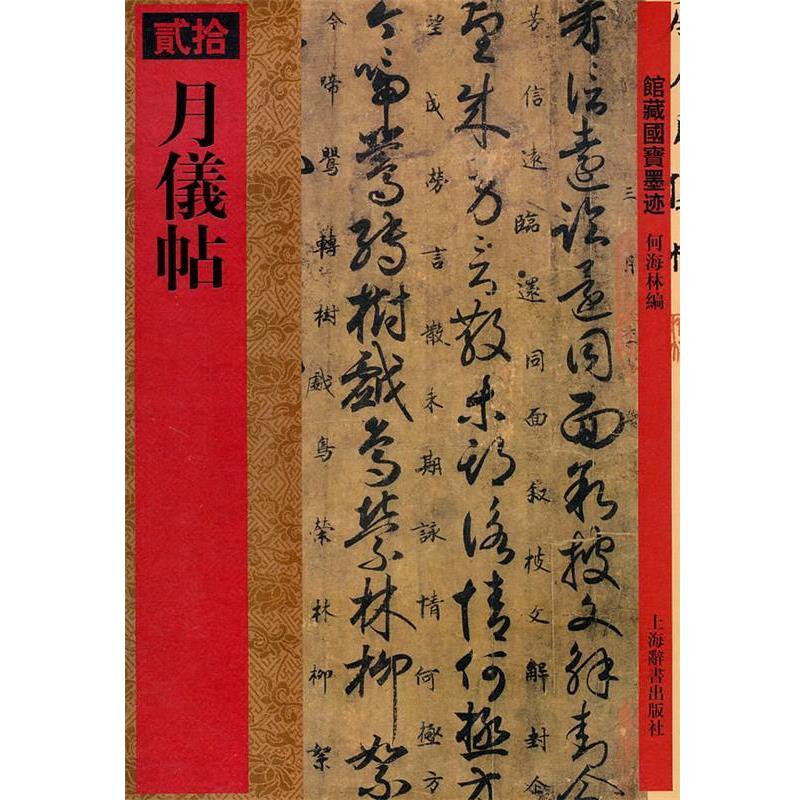 貳拾
月儀帖
館藏國寶墨迹
何海林編
上海辭書出版社
芳信遠臨還同面叙披文解封令
芳信遠臨還同面叙披文解封令
望成勞言散未期詠情何極方
望成勞言散未期詠情何極方
今啼鶯轉樹戲鳥縈林柳絮
令啼鶯轉樹戲鳥縈林柳絮